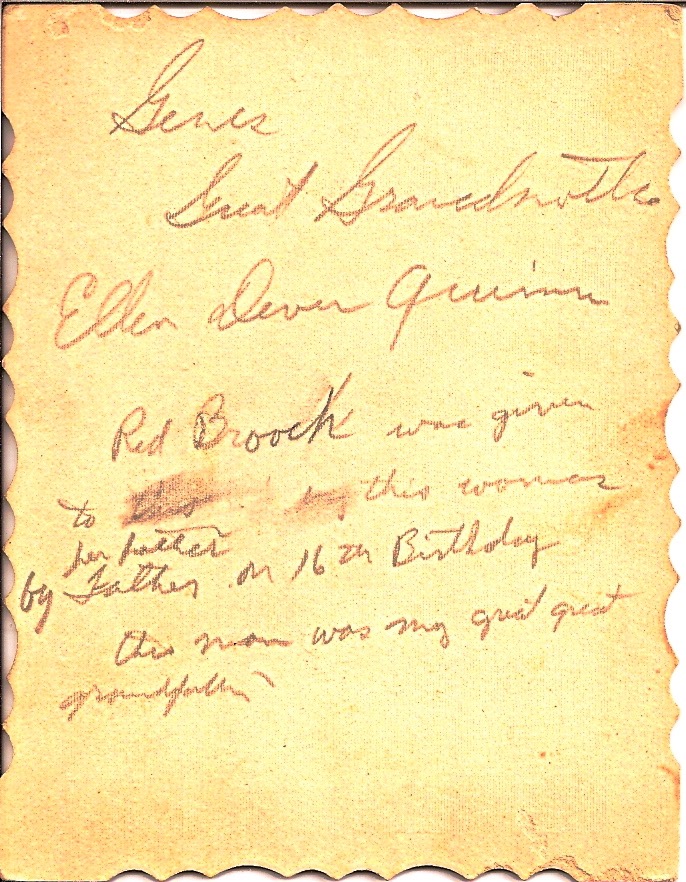 Genes
Great Grandmother
Ellen Dever Quinn
Red Broock was given
to this woman
her father
by Father on 16th Birthday
this man was my great great
grandfather